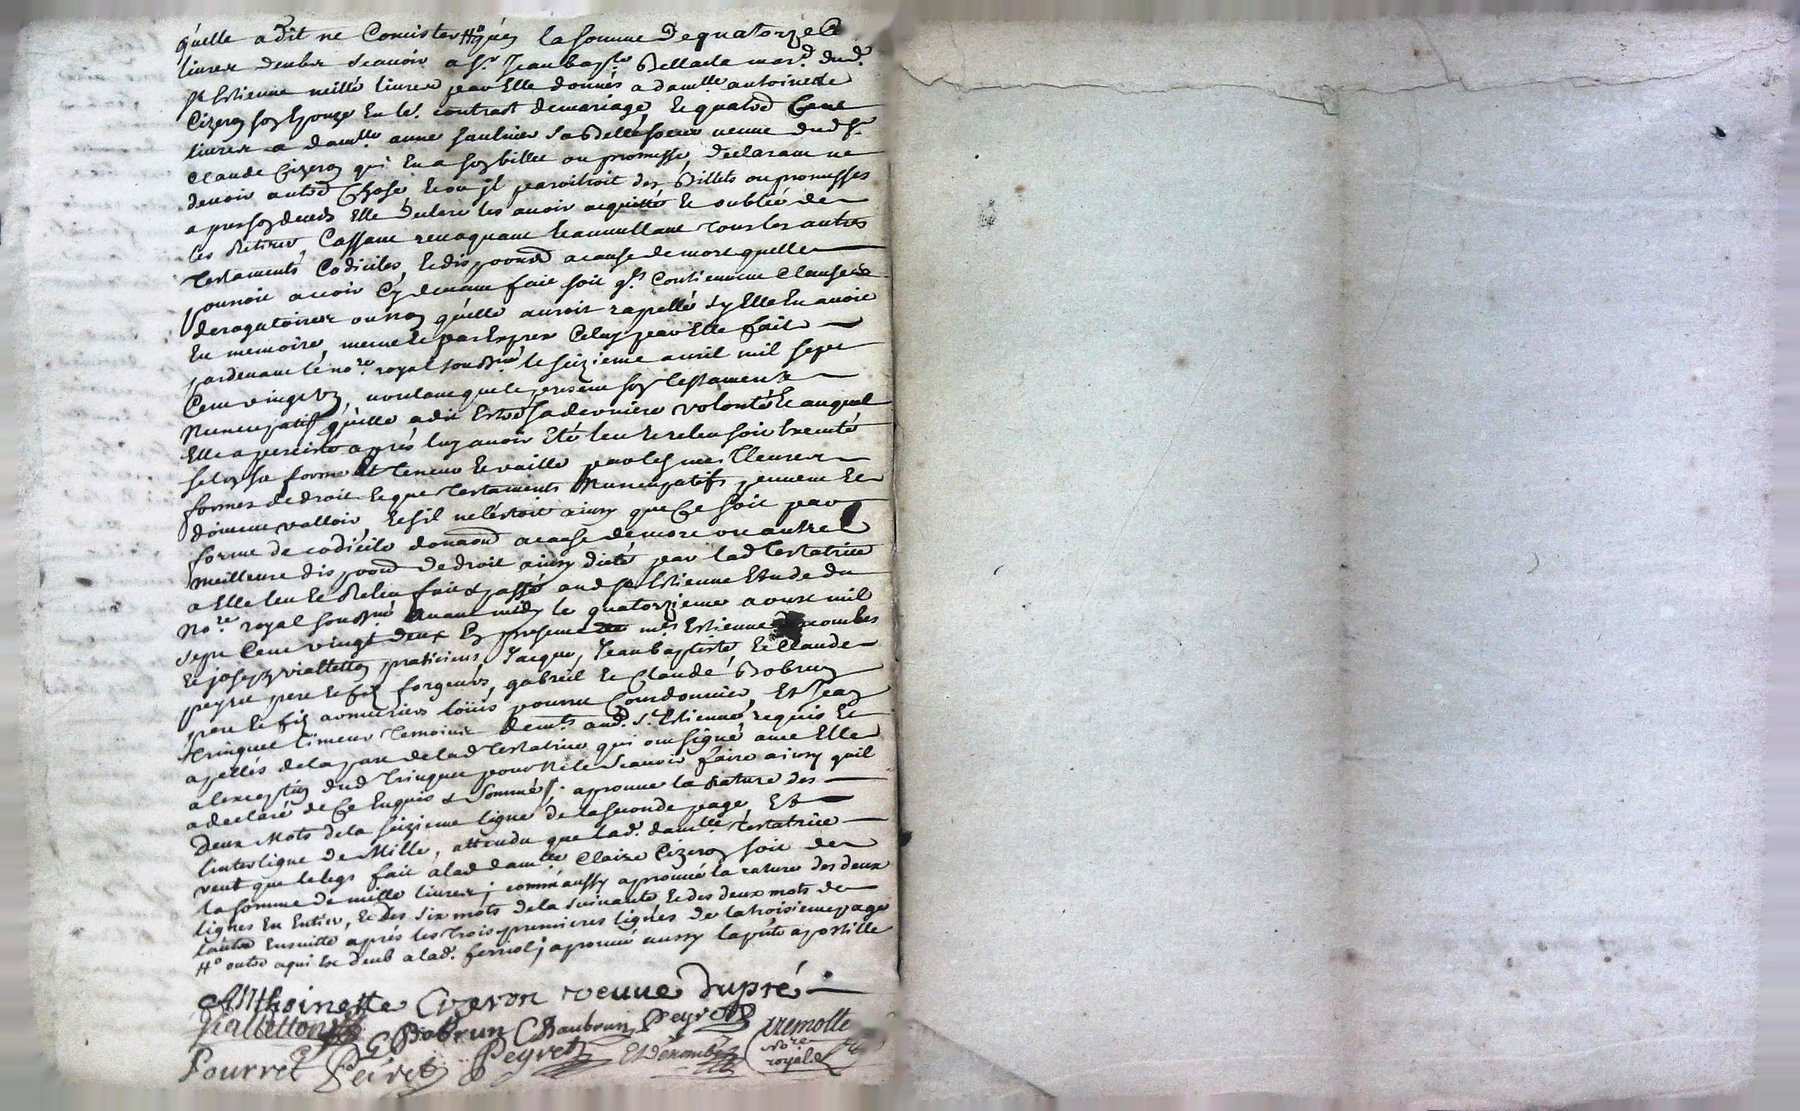 quelle a dit ne Consister # qu'en la somme de quatorze C
livres deube scavoir a Sr Jean bapte Bellacla mard dud.
St Estienne mille livres par Elle donnés a damlle antoinette
Cizeron son Epouze En le. contract de mariage, Et quatre Cent
livres a damlle anne faulnier sa Bellesoeur veuve dud Sr
Claude Cizeron qui En a son billet ou promesse, Declarant ne
devoir autre Chose Et ou jl paroitroit des Billets ou promesses
apres son deceds Elle declare les avoir acquitté Et oublié de
les Retirer, Cassant revoquant Et annullant Tous les autres
Testaments Codiciles, Et dispoons a cause de mort quelle
pouvoit avoir Cy devant fait soit qls Contiennent Clauses
derogatoires ou non quelle auroit rapellé sy Elle En avoit
En memoire, meme Et par Exprex Celuy par Elle fait
pardevant le nore. royal soussné le seizieme avril mil sept
Cent vingt un, voulant que le present son Testament
Nuncupatif quelle a dit Estre sa derniere volonté Et auquel
Elle a persisté après luy avoir Eté leu Et releu soit Executé
selon sa forme Et Teneur Et vaille par les meilleures
formes de droit Et que Testaments Nuncupatifs peuvent Et
doivent valloir, Et sil ne lestoit ainsy que Ce soit par
forme de codicile donaon a cause de mort ou autre
meilleure dispoon de droit ainsy dicté par lad Testatrice
a Elle leu Et Releu fait & passé aud St Estienne Etude du
Nore. royal soussné Avant midy le quatorzieme aoust mil
sept Cent vingt deux En presence de mes Estienne Denombes
Et joseph vialletton praticiens, Jacque, Jean baptiste, Et Claude
peyret pere Et fils forgeurs, gabriel Et Claude Bobrun
pere Et fils armuriers loüis pourret Courdonnier, Et Jean
Tringuet limeur Temoins demts aud. St. Estienne, requis Et
apellés de la part de lad Testatrice qui ont signé avec Elle
a lexception dud Tringuet pour Ne le Scavoir faire ainsy quil
a declaré de Ce Enquis & Sommé /. aprouve la rature des
Deux Mots de la seizieme ligne de la seconde page, Et
linterligne de Mille, attendu que lad. damlle Testatrice
veut que le legs fait a lad damlle Claire Cizeron soit de
la somme de mille livres; comm'aussy aprouvé la rature des deux
lignes En Entier, Et des six mots de la suivante Et des deux mots de
lautre Ensuitte aprés les Trois premieres lignes de la troisieme page
# outre a qui Est deub a lad. ferriol; aprouvé aussy la pnte apostille
Anthoinette Cizeron veuve dupré
Vialletton G Bobrun C Baubrun Peyret tremolle
Nore royal
Pourret Peiret Peyret E Denombes